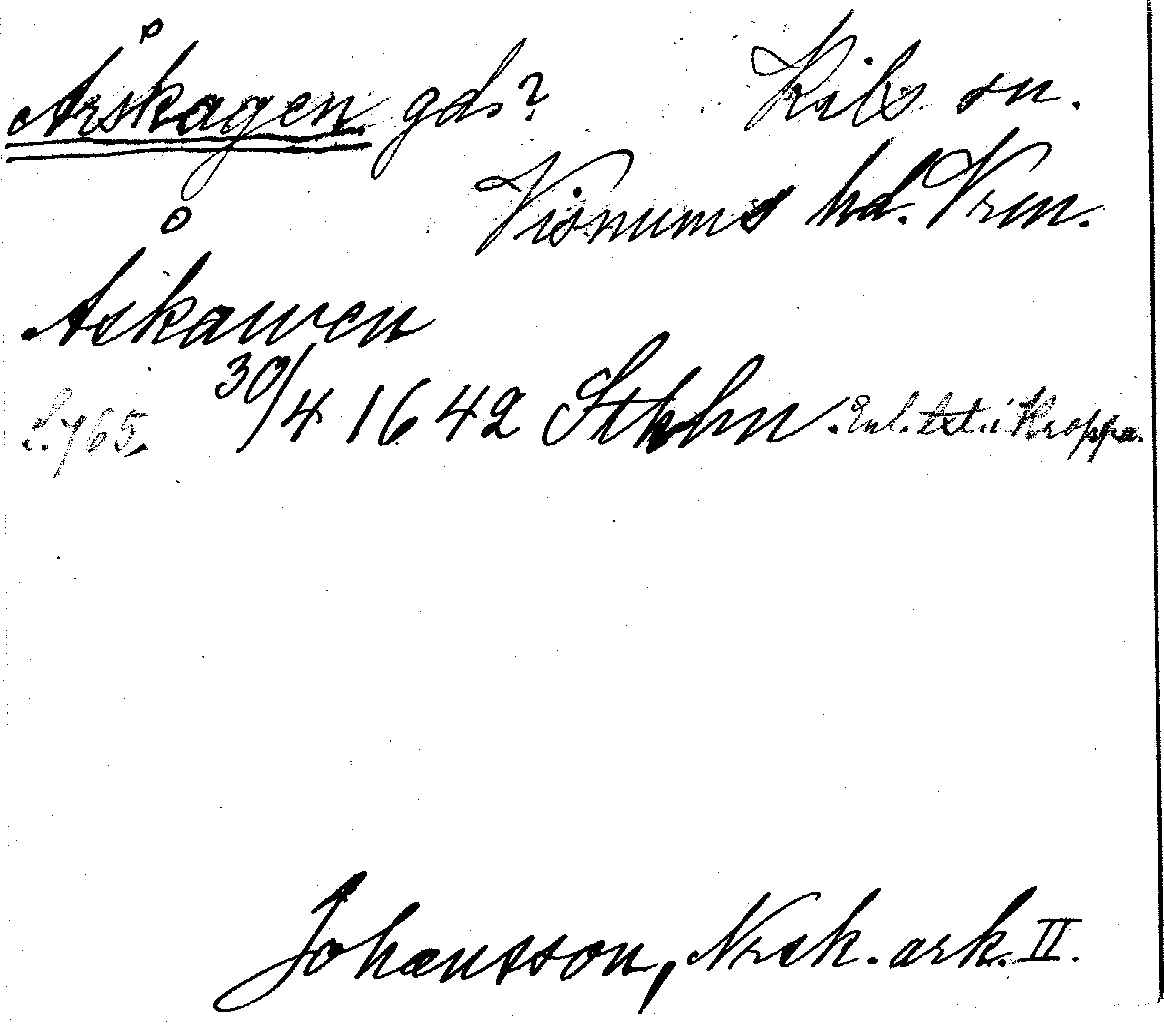 Årskagen gd.? Kils sn.
Visnums hd. Vrm.
Åskawen
s. 765. 30/4 1642 Sthlm. Enl. txt. i Kroppa.
Johansson, Norsk. ark. II.